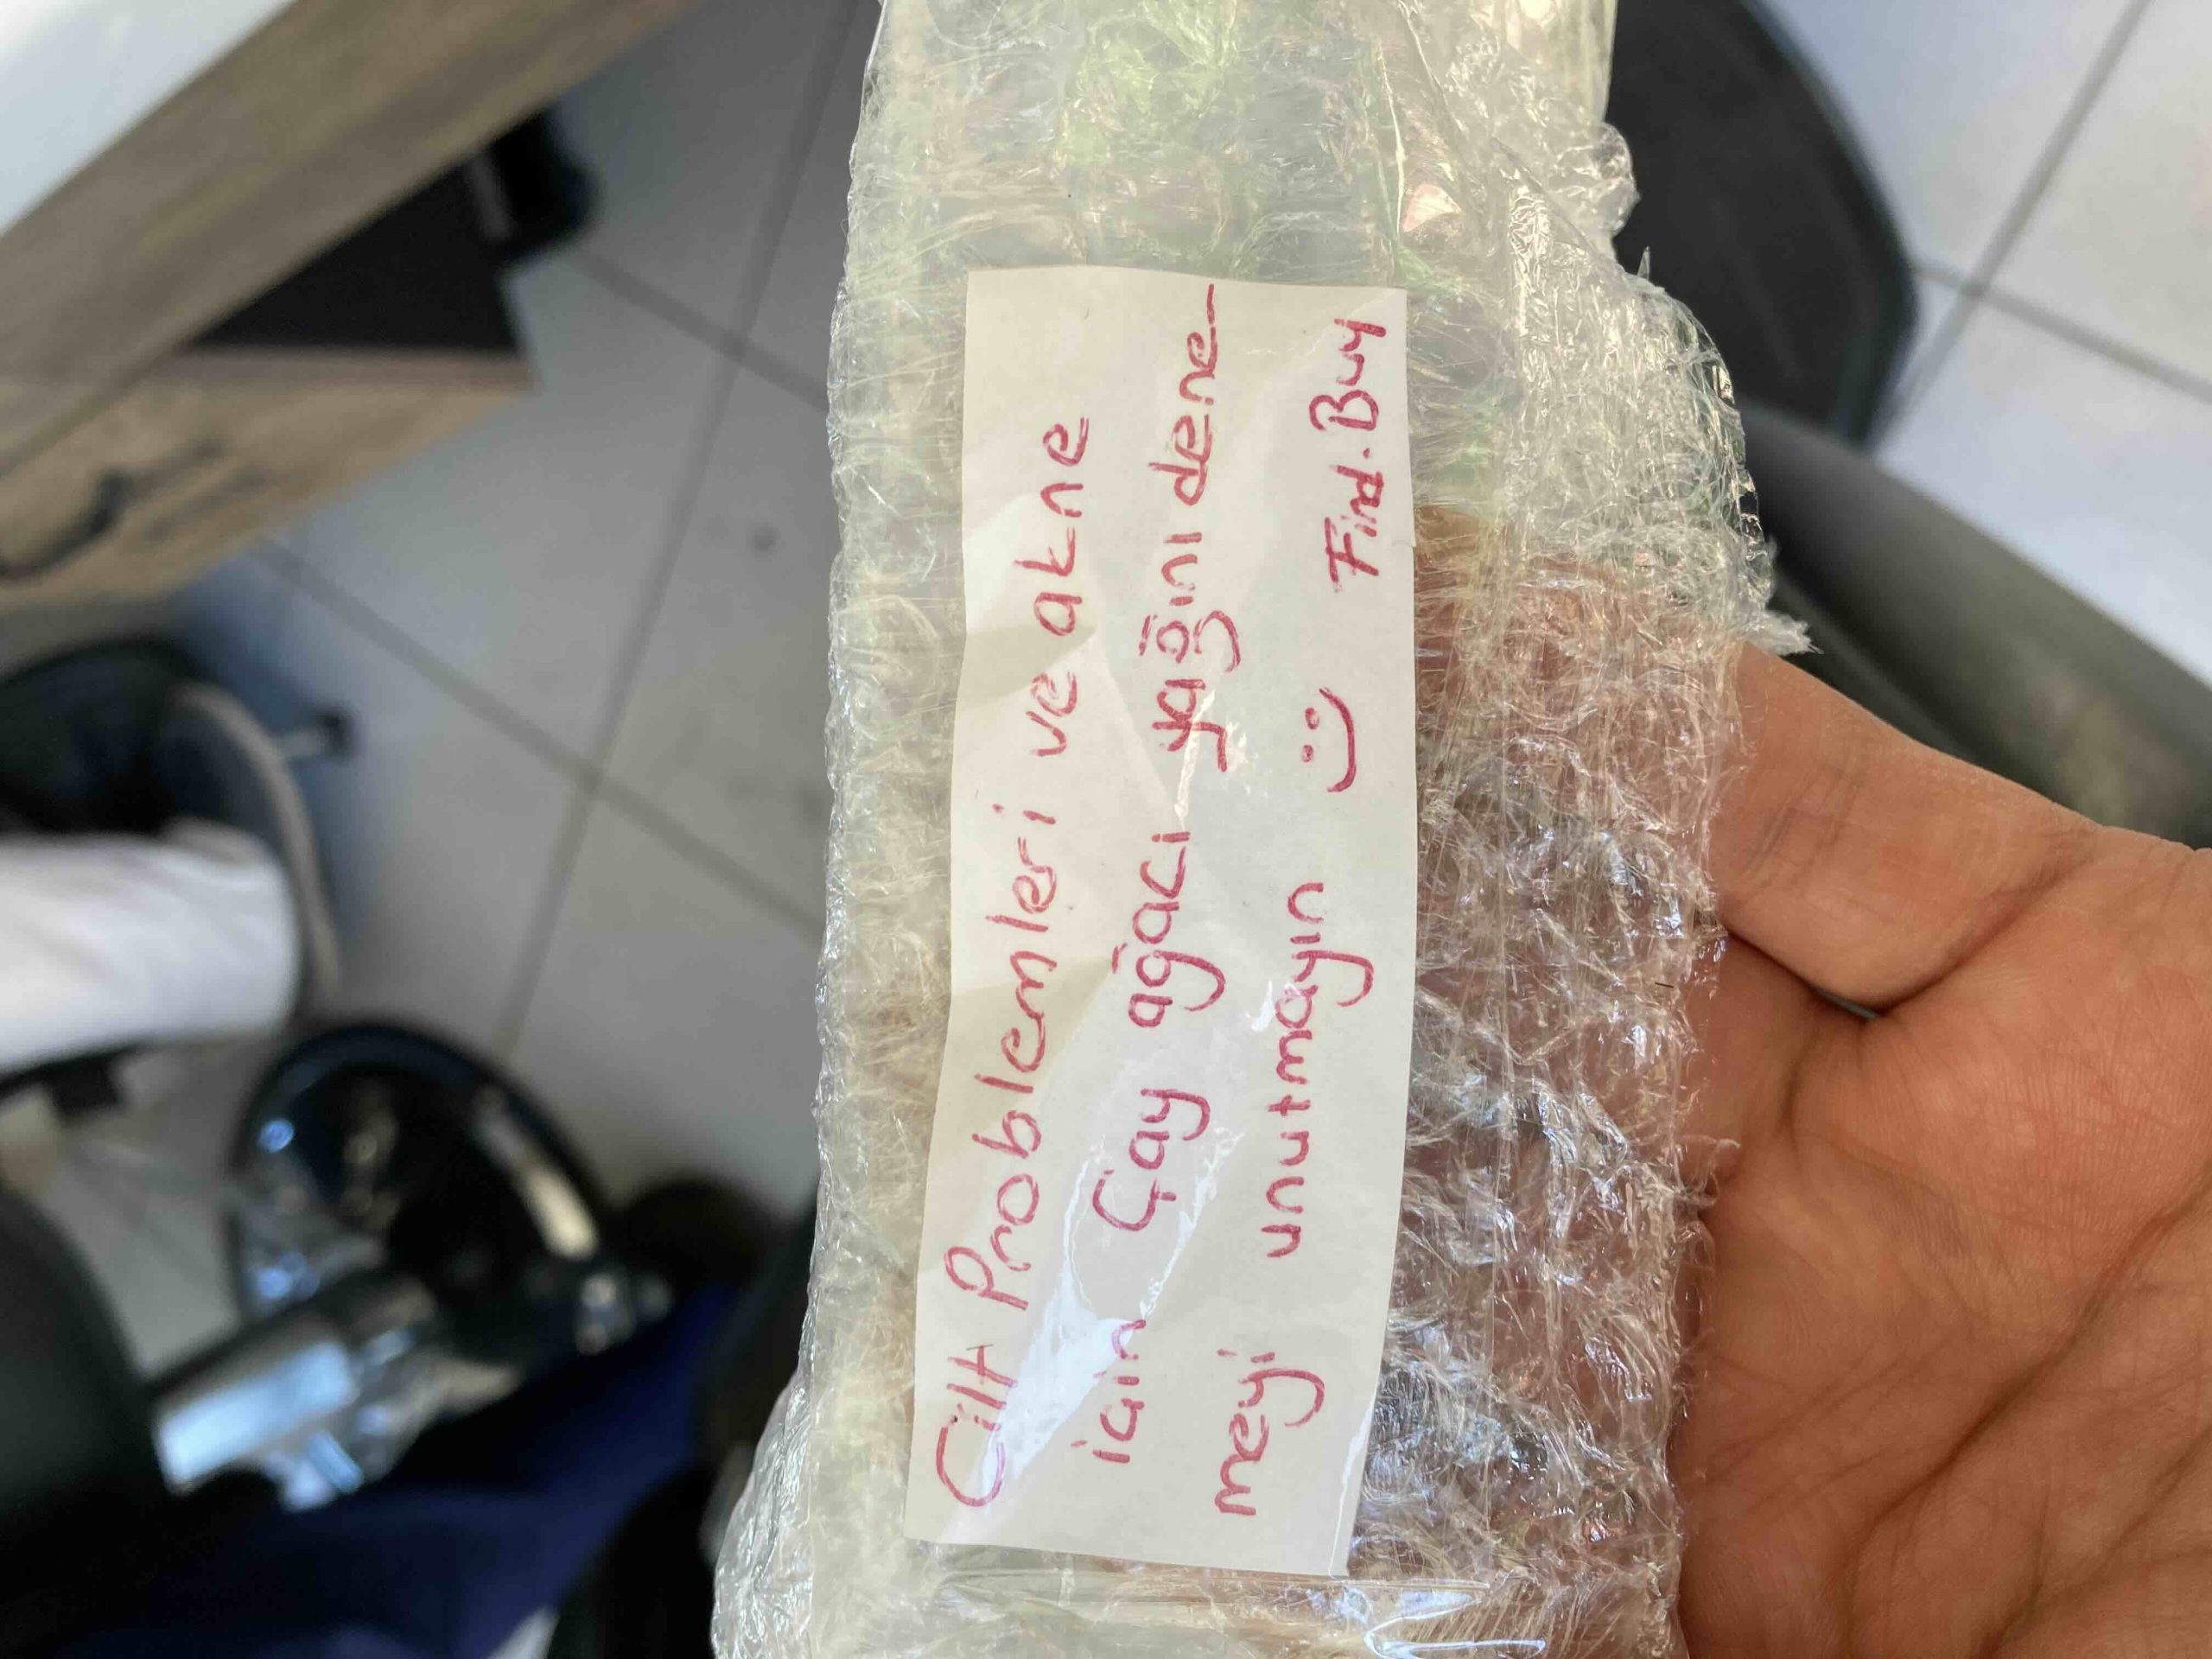 Cilt Problemleri ve akne
için Çay ağacı yağını dene-
meyi unutmayın :) Find.Buy